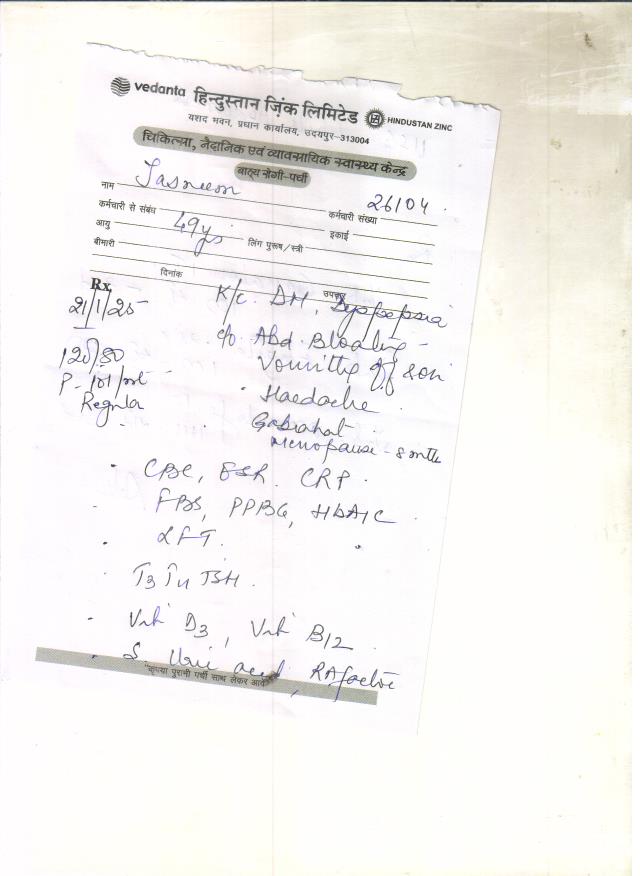 vedanta हिन्दुस्तान ज़िंक लिमिटेड HINDUSTAN ZINC
यशद भवन, प्रधान कार्यालय, उदयपुर-313004
चिकित्सा, नैदानिक एवं व्यावसायिक स्वास्थ्य केन्द्र
बाह्य रोगी-पर्ची
नाम Tasneem कर्मचारी संख्या 26104
कर्मचारी से संबंध इकाई
आयु 49 yrs लिंग पुरूष/स्त्री
बीमारी
दिनांक उपचार
Rx
21/1/25 K/c. DM, Dyspepsia
120/80 c/o. Abd. Bloating
P - 101/mt Vomitting off & on
Regular Haedache
Gabrahat
Menopause - 8 mth
CBC, ESR, CRP.
FBS, PPBG, HbA1C
LFT.
T3 T4 TSH.
Vit D3, Vit B12
S. Uric acid, RA factor
"कृपया पुरानी पर्ची साथ लेकर आवें"